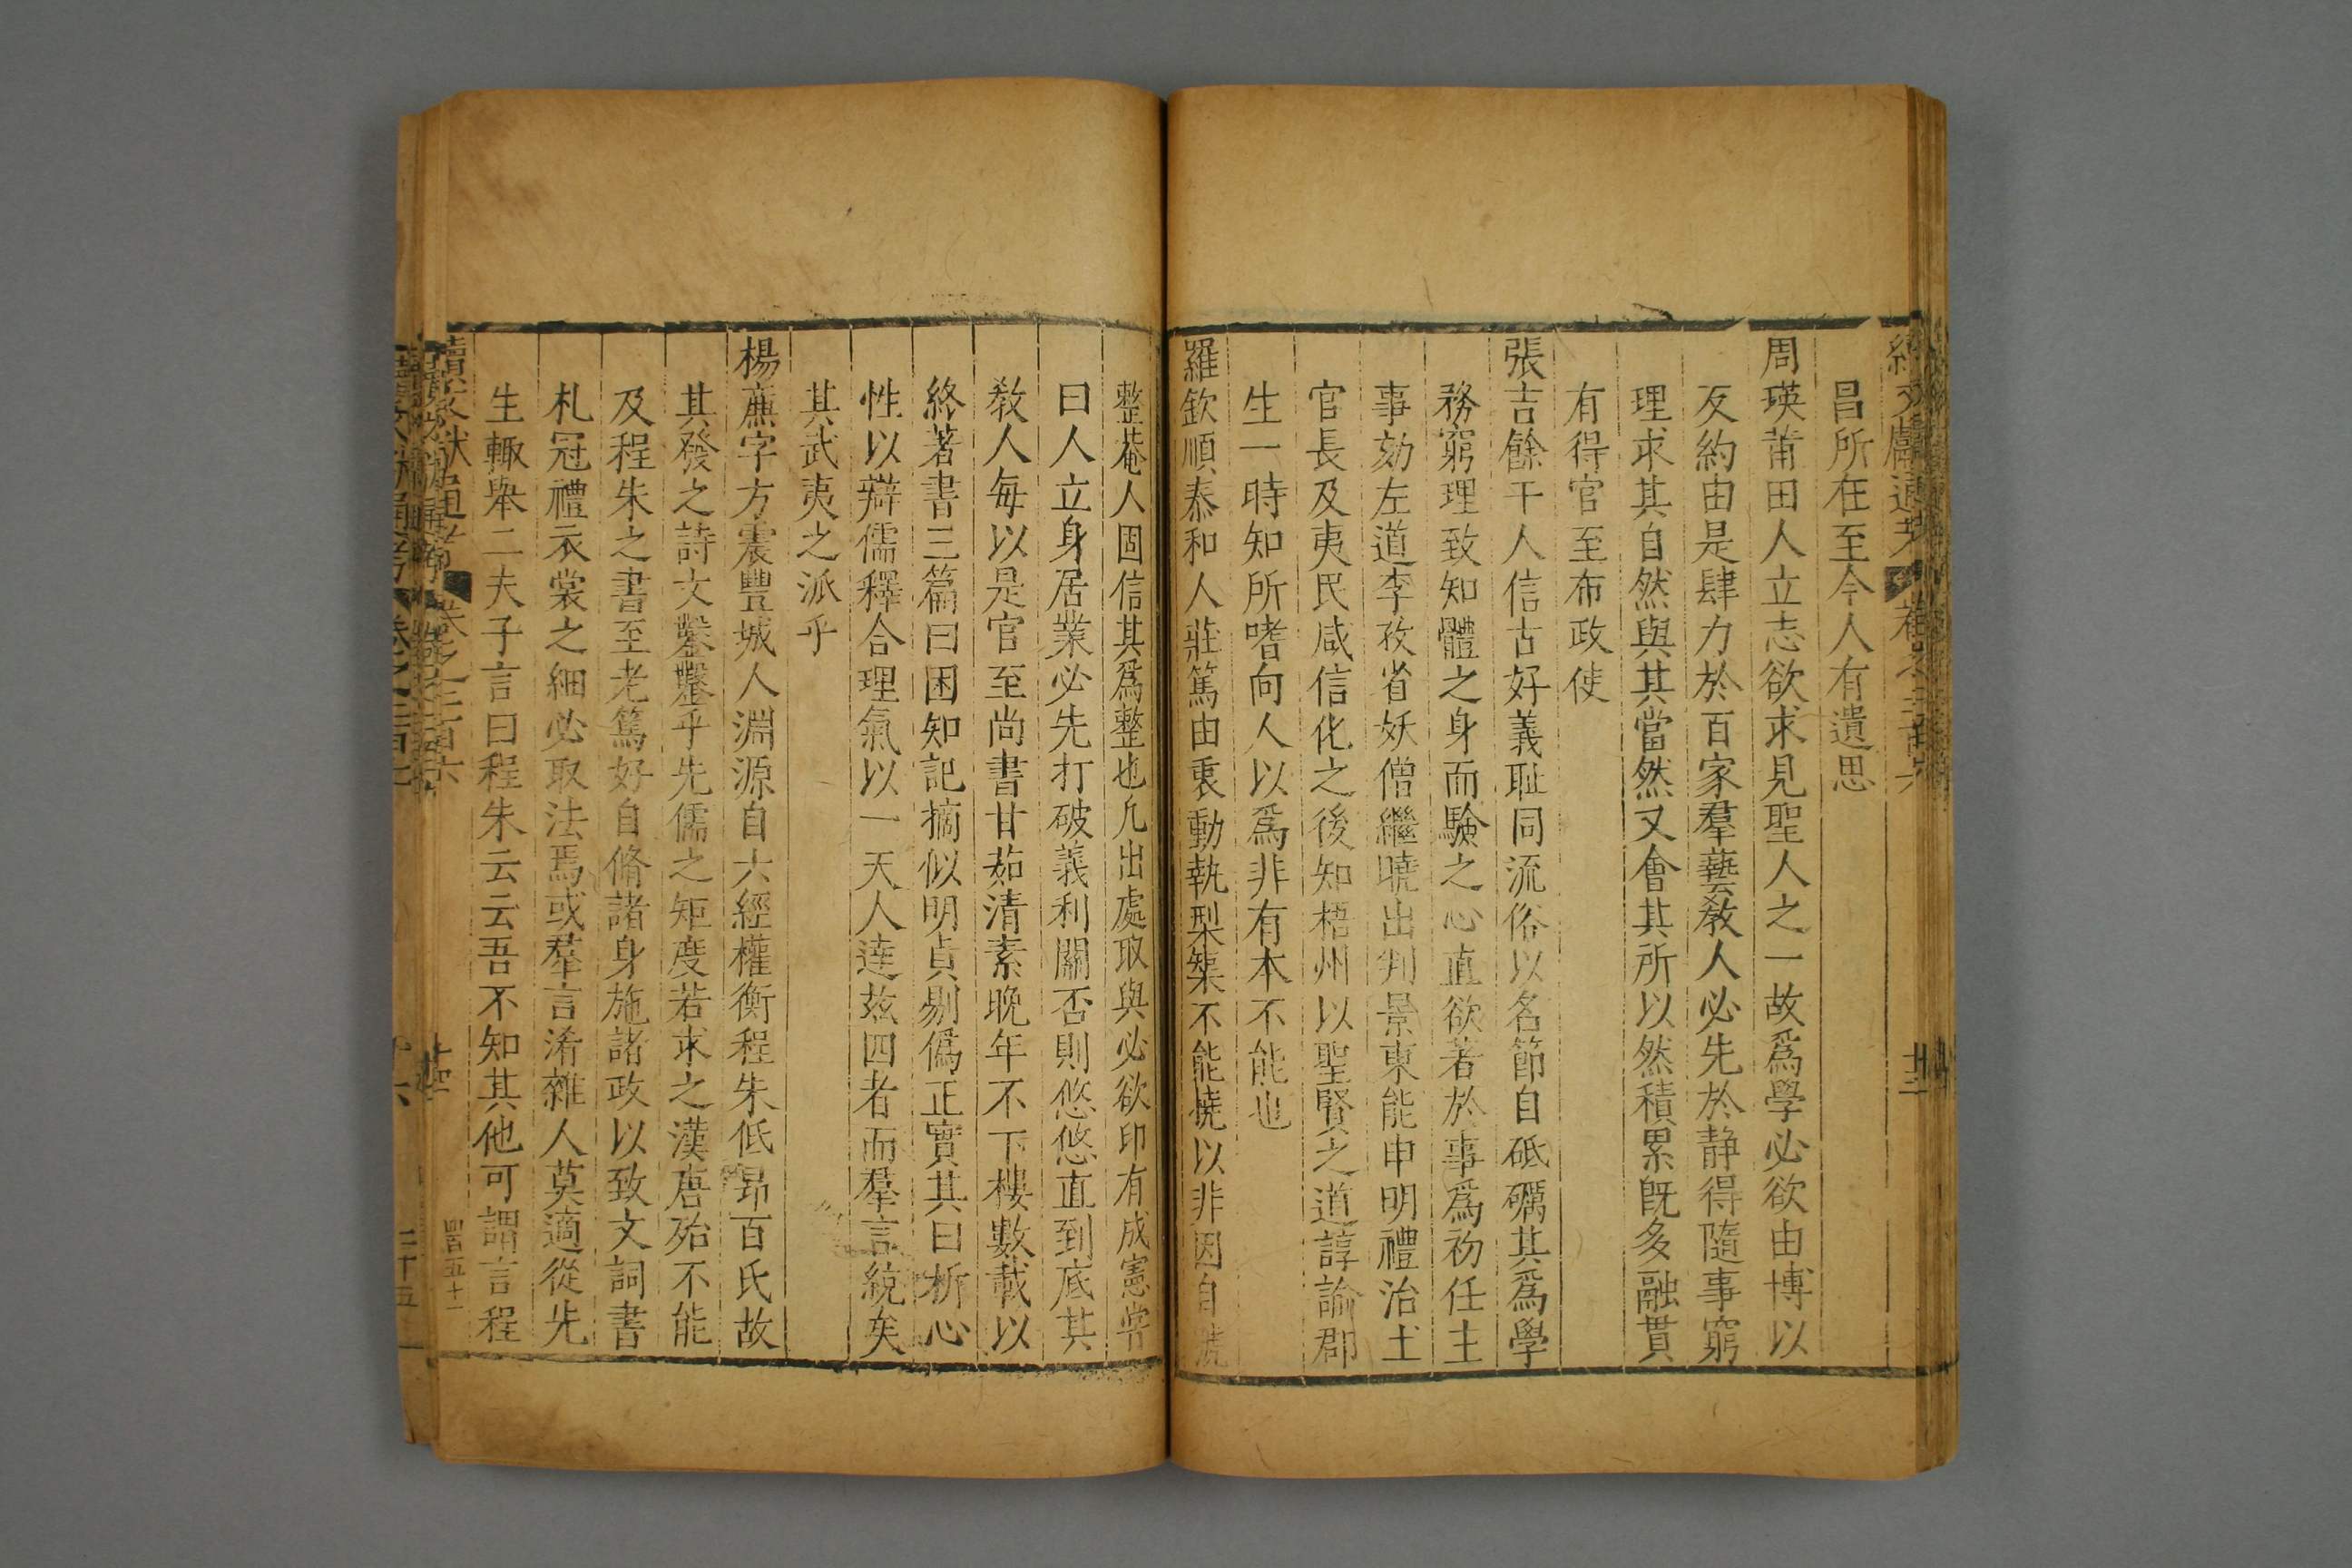 昌所在至今人有遺思
周瑛莆田人立志欲求見聖人之一故爲學必欲由博以
反約由是肆力於百家羣藝教人必先於静得隨事窮
理求其自然與其當然又會其所以然積累旣多融貫
有得官至布政使
張吉餘干人信古好義耻同流俗以名節自砥礪其爲學
務窮理致知體之身而驗之心直欲著於事爲初任主
事劾左道李孜省妖僧繼曉出判景東能申明禮治土
官長及夷民咸信化之後知梧州以聖賢之道諄諭郡
生一時知所嗜向人以爲非有本不能也
羅欽順泰和人莊篤由衷動執榘不能撓以非因自號
整菴人固信其爲整也凢出處取與必欲印有成憲嘗
曰人立身居業必先打破義利關否則悠悠直到底其
教人每以是官至尚書甘茹清素晚年不下樓數載以
終著書三篇曰困知記摘似明貞剔僞正實其曰析心
性以辯儒釋合理氣以一天人達兹四者而羣言統矣
其武夷之派乎
楊廉字方震豐城人淵源自六經權衡程朱低昻百氏故
其發之詩文鑿鑿乎先儒之矩度若求之漢唐殆不能
及程朱之書至老篤好自脩諸身施諸政以致文詞書
札冠禮衣裳之細必取法焉或羣言淆雜人莫適從先
生輙舉二夫子言曰程朱云云吾不知其他可謂言程
續文獻通考 卷之二百六
四百五十一